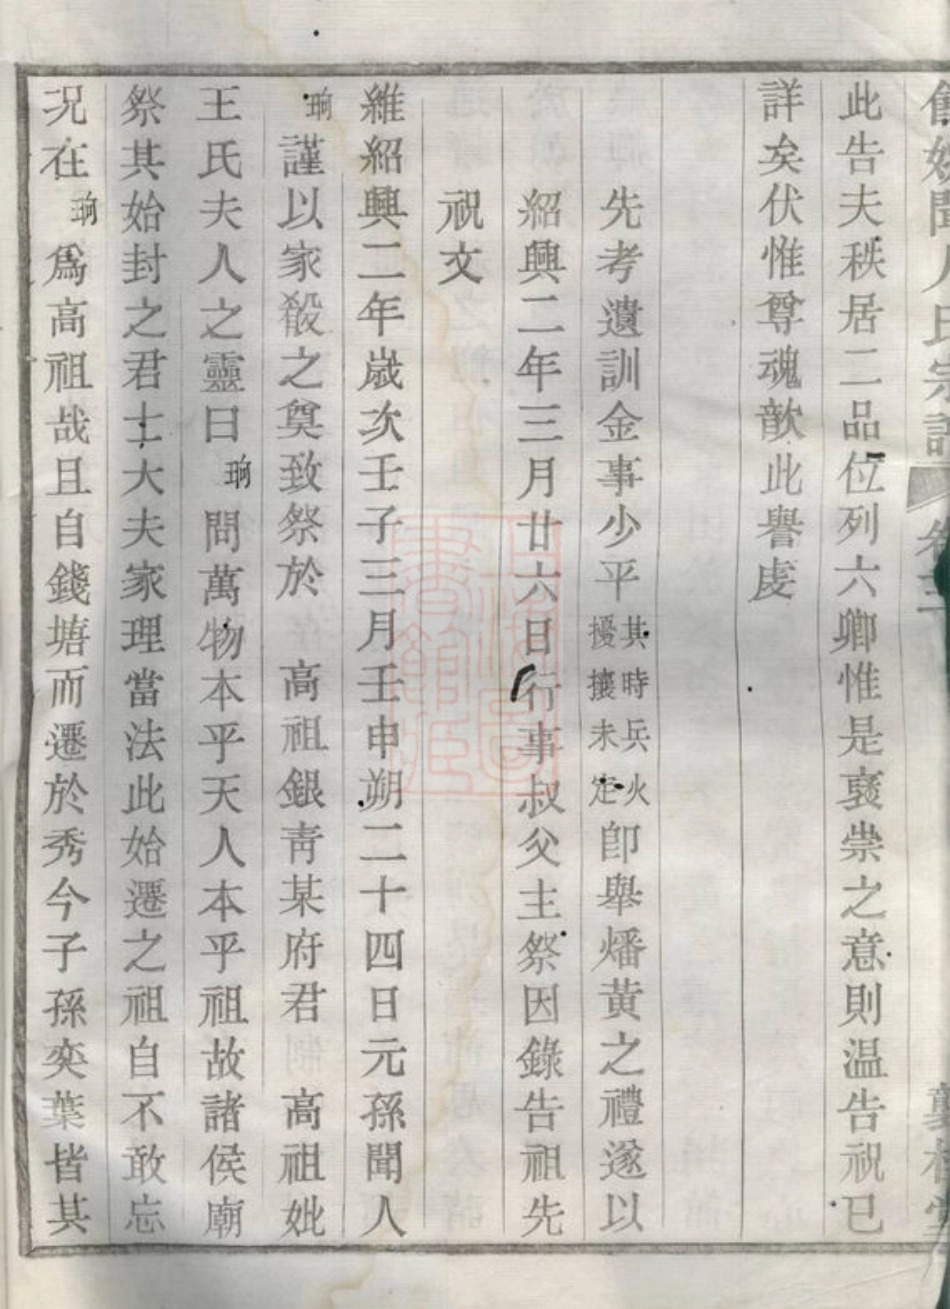 此告夫秩居二品位列六卿惟是褒崇之意則温告祝已
詳矣伏惟尊魂歆此譽處
先考遺訓金事少平其時兵火擾攘未定卽舉燔黃之禮遂以
紹興二年三月廿六日行事叔父主祭因錄告祖先
祝文
維紹興二年歲次壬子三月壬申朔二十四日元孫聞人
珣謹以家殽之奠致祭於 高祖銀青某府君 高祖妣
王氏夫人之靈曰珣問萬物本乎天人本乎祖故諸侯廟
祭其始封之君士大夫家理當法此始遷之祖自不敢忘
况在珣爲高祖哉且自錢塘而遷於秀今子孫奕葉皆其